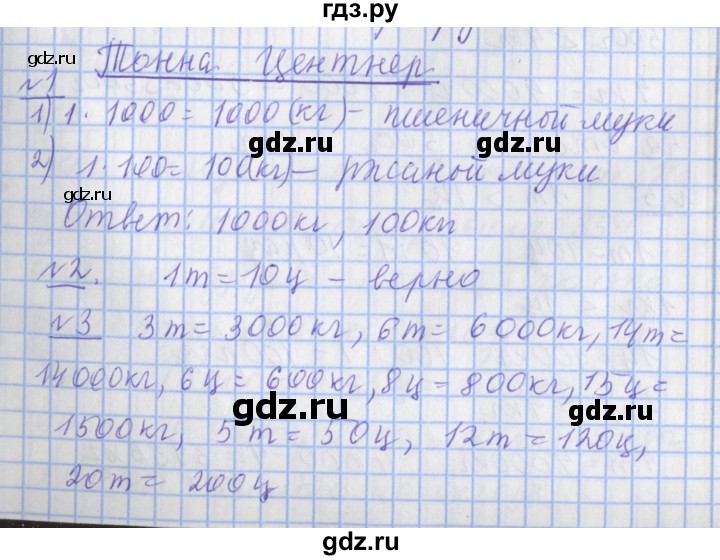 гдз.ру
Тонна Центнер
№1
1) 1·1000=1000(кг)- пшеничной муки
2) 1·100=100(кг)- ржаной муки
Ответ: 1000кг, 100кг
№2. 1т=10ц - верно
№3 3т=3000кг, 6т=6000кг, 14т=
14000кг, 6ц=600кг, 8ц=800кг, 15ц=
1500кг, 5т=50ц, 12т=120ц,
20т=200ц
gdz.ru
gdz.ru
gdz.ru
gdz.ru
gdz.ru
gdz.ru
gdz.ru
gdz.ru
gdz.ru
gdz.ru
gdz.ru
gdz.ru